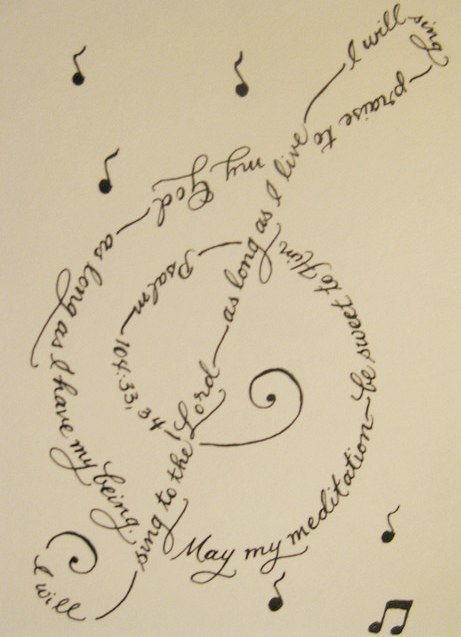 I will
sing to the Lord
as long as I live
I will sing
praise to
my God
as long as I have my being.
May my meditation
be sweet to Him
Psalm 104:33, 34